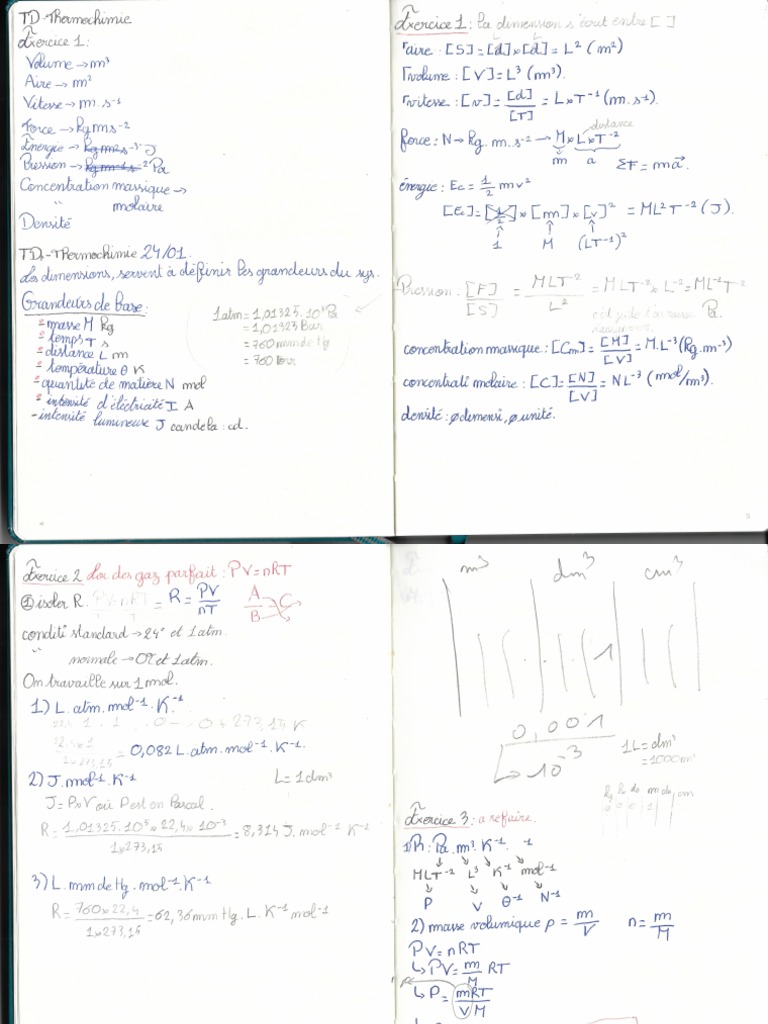 TD-Thermochimie
Exercice 1:
Volume → m³
Aire → m²
Vitesse → m.s⁻¹
Force → kg m s⁻²
Énergie → J
Pression → Pa
Concentration massique →
" molaire
Densité
TD-Thermochimie 24/01.
Les dimensions, servent à définir les grandeurs du sys.
Grandeurs de base:
- masse M kg
- temps T s
- distance L m
- température θ K
- quantité de matière N mol
- intensité d'éléctricité I A
- intensité lumineuse J candela: cd.
1atm = 1,01325.10⁵ Pa
= 1,01325 Bar
= 760 mm de Hg
= 760 torr
4
Exercice 1: la dimension s'écrit entre [ ]
aire: [S] = [d]×[d] = L² (m²)
volume: [V] = L³ (m³).
vitesse: [v] = [d]/[T] = L×T⁻¹ (m.s⁻¹).
force: N → kg.m.s⁻² → M×L×T⁻²
distance
m a ΣF = ma⃗.
énergie: Ec = 1/2 mv²
[Ec] = [1/2]×[m]×[v]² = ML²T⁻² (J).
1 M (LT⁻¹)²
Pression: [F]/[S] = MLT⁻²/L² = MLT⁻²×L⁻² = ML⁻¹T⁻²
Pa.
concentration massique: [Cm] = [M]/[V] = M.L⁻³ (kg.m⁻³)
concentrati molaire: [C] = [N]/[V] = NL⁻³ (mol/m³).
densité: ø dimensi, ø unité.
5
Exercice 2 Loi des gaz parfait: PV=nRT
① isoler R. PV=nRT = R = PV/nT
A/B = C
conditi standard → 24° et 1atm.
" normale → 0°C et 1atm.
On travaille sur 1 mol.
1) L.atm.mol⁻¹.K⁻¹
0+273,15 K
22,4×1/1×273,15 = 0,082 L.atm.mol⁻¹.K⁻¹.
2) J.mol⁻¹.K⁻¹ L=1dm³
J = P×V où P est en Pascal.
R = 1,01325.10⁵×22,4×10⁻³/1×273,15 = 8,314 J.mol⁻¹ K⁻¹
3) L.mm de Hg.mol⁻¹.K⁻¹
R = 760×22,4/1×273,15 = 62,36 mm Hg.L.K⁻¹ mol⁻¹
m³ dm³ cm³
1
0,001
↳ 10⁻³
1L = dm³
= 1000m³
Exercice 3: a refaire.
1) R: Pa.m³.K⁻¹. ⁻¹
MLT⁻² L³ K⁻¹ mol⁻¹
P V θ⁻¹ N⁻¹
2) masse volumique ρ = m/V n = m/M
PV = nRT
↳ PV = m/M RT
↳ P = mRT/VM